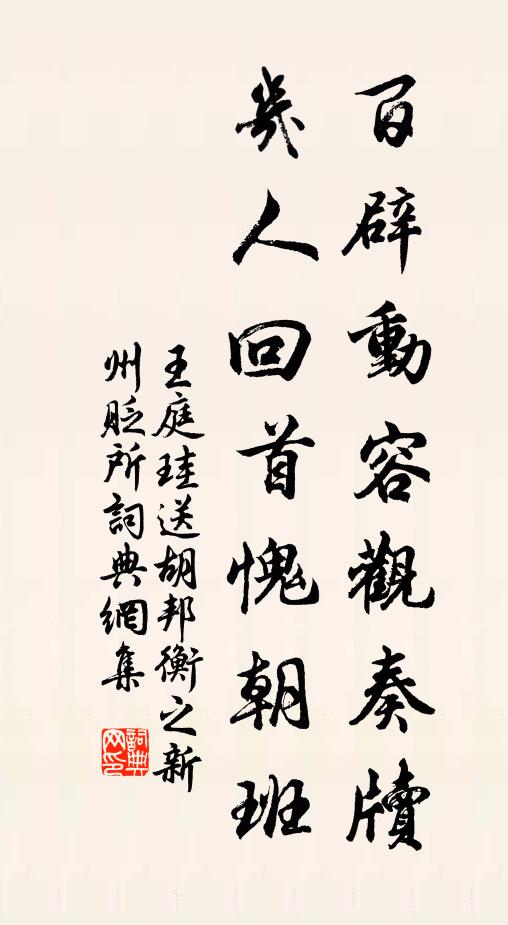 百辟動容觀奏牘
幾人回首愧朝班
王庭珪送胡邦衡之新
州貶所詞典網集
詞典网印